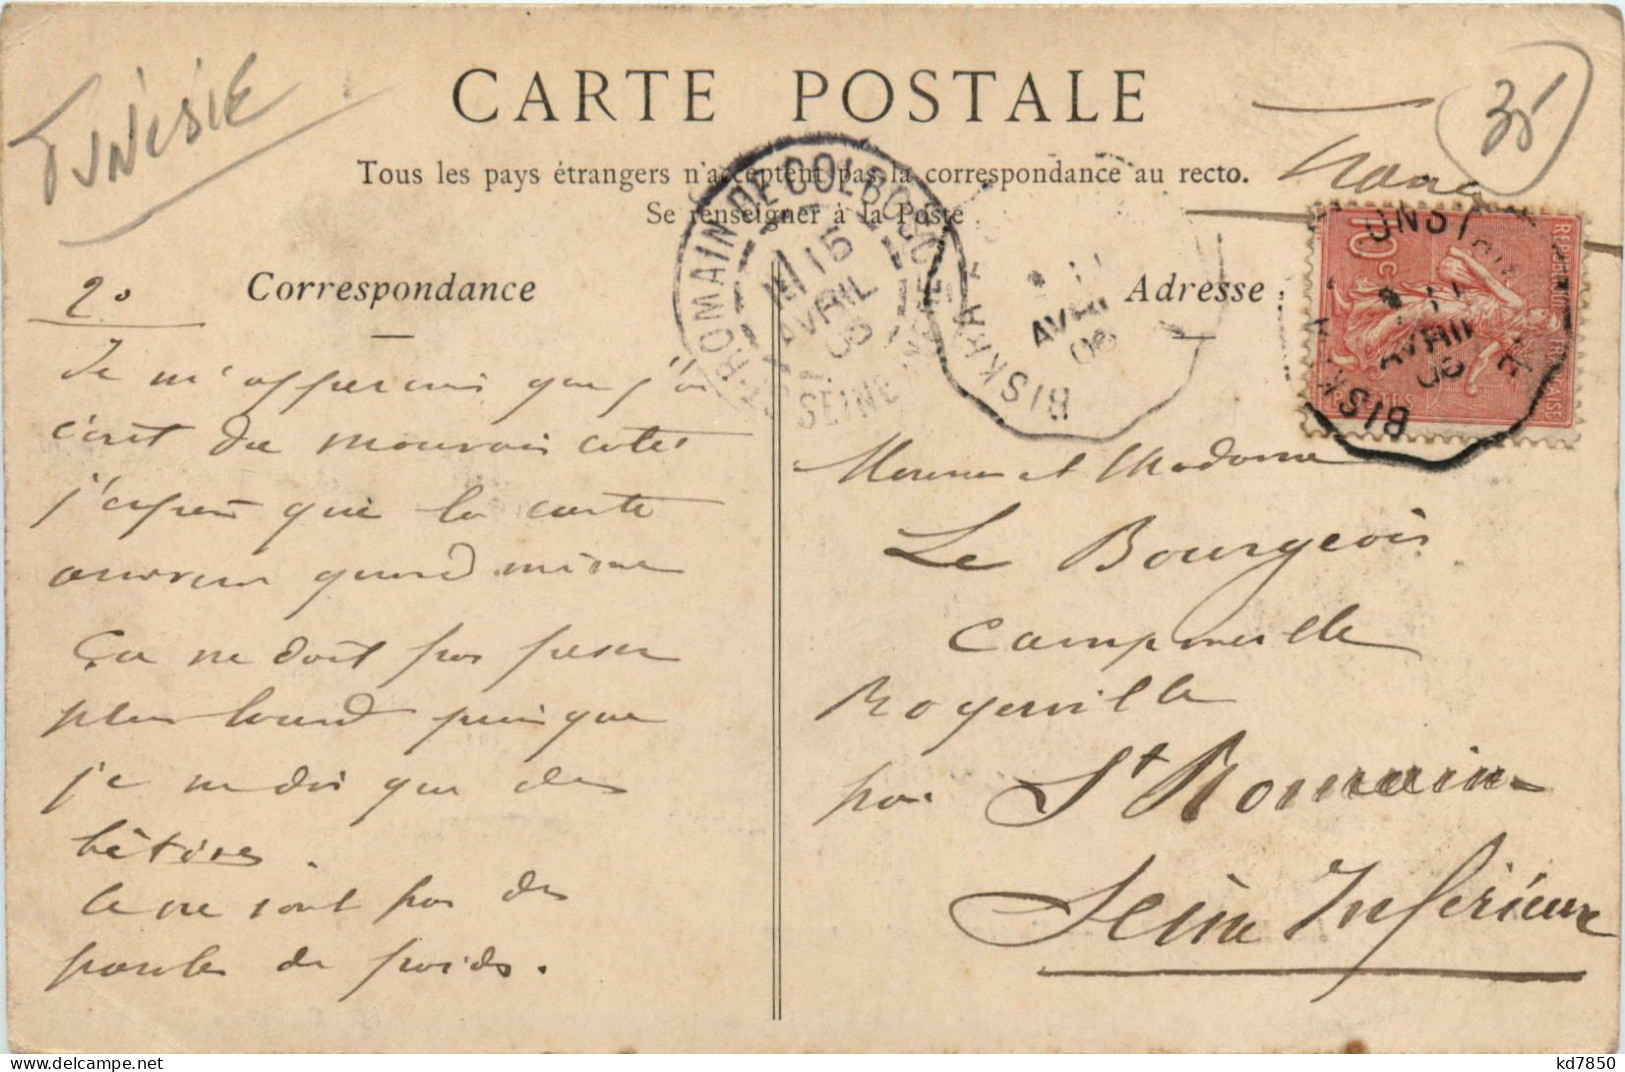 TUNISIE
35
CARTE POSTALE
Tous les pays étrangers n'acceptent pas la correspondance au recto.
Se renseigner à la Poste
ST-ROMAIN-DE-COLBOSC
15
AVRIL
06
SEINE INFRE
11
AVRIL
06
BISKRA
CONST
11
AVRIL
06
BISKRA
REPUBLIQUE FRANÇAISE
10 c
POSTES
Correspondance
Adresse
2o
Je m'aperçois que j'ai
écrit du mauvais côté
j'espère que la carte
arrivera quand même
Ça ne doit pas peser
plus lourd puisque
je ne dis que des
bêtises.
Ce ne sont pas des
paroles de poids.
Monsieur et Madame
Le Bourgeois
Rogerville
par St Romain
Seine Inférieure
kd7850